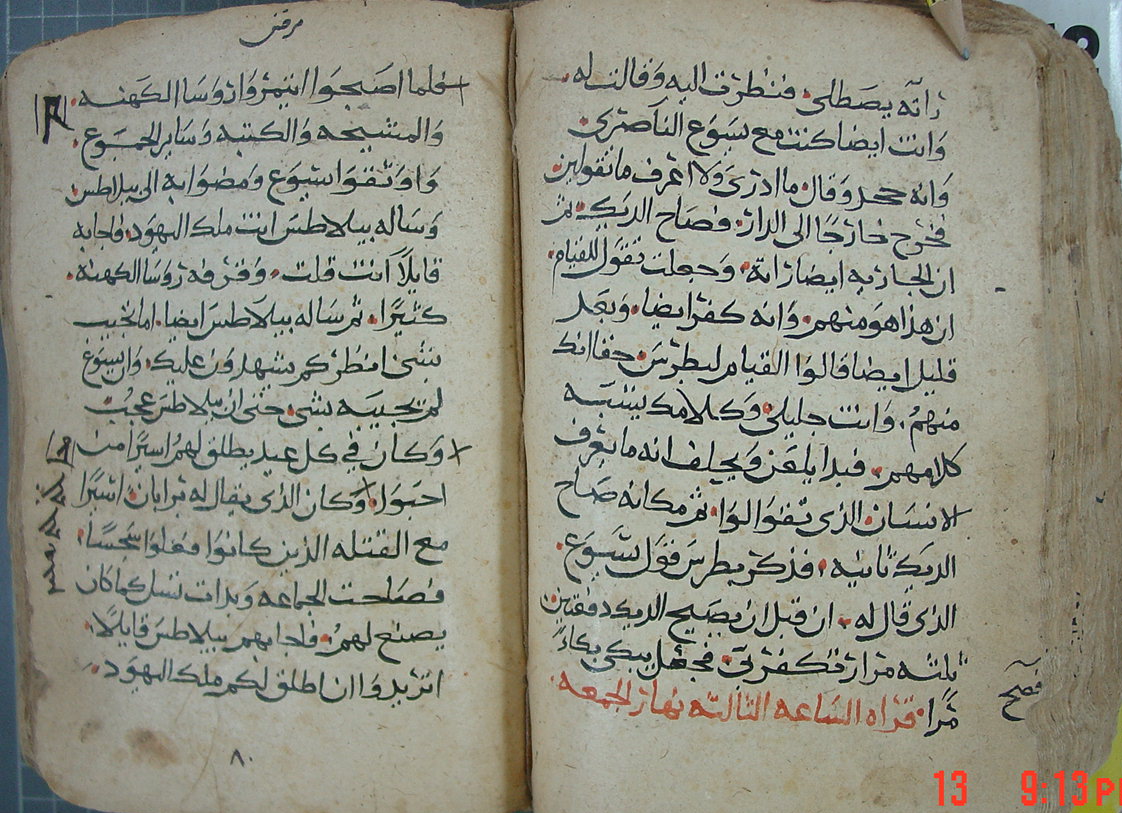 راته يصطلي فنظرت اليه وقالت له
وانت ايضا كنت مع يسوع الناصري
وانه جحد وقال ما ادري ولا اعرف ما تقولين
فخرج خارجا الى الدار وصاح الديك ثم
ان الجاريه ايضا راته وجعلت تقول للقيام
ان هذا هو منهم وانه كفر ايضا وبعد
قليل ايضا قالوا القيام لبطرس حقا انك
منهم وانت جليلي وكلامك يشبه
كلامهم فبدا يلعن ويحلف انه ما يعرف
الانسان الذي تقولوا ثم مكانه صاح
الديك ثانيه فذكر بطرس قول يسوع
الذي قال له ان قبل ان يصيح الديك دفعتين
ثلثه مرار تكفر بي فجعل يبكي بكاءً
مرا قراه الساعه الثالثه نهار الجمعه
فصح
مرقس
فلما اصبحوا ائتمروا روسا الكهنه
والمشيخه والكتبه وساير الجموع
واوثقوا يسوع ومضوا به الى بيلاطس
وساله بيلاطس انت ملك اليهود فاجابه
قايلا انت قلت وقرفه روسا الكهنه
كثيرا ثم ساله بيلاطس ايضا اما تجيب
بشي انظر كم يشهدون عليك وان يسوع
لم يجيبه بشي حتى ان بيلاطس عجب
وكان في كل عيد يطلق لهم اسيرا من
احبوا وكان الذي يقال له برابان اسيرا
مع القتله الذين كانوا فعلوا سجسا
فصاحت الجماعه وبدات تسل كما كان
يصنع لهم فاجابهم بيلاطس قايلا
اتريدوا ان اطلق لكم ملك اليهود
٨٠
13 9:13 P